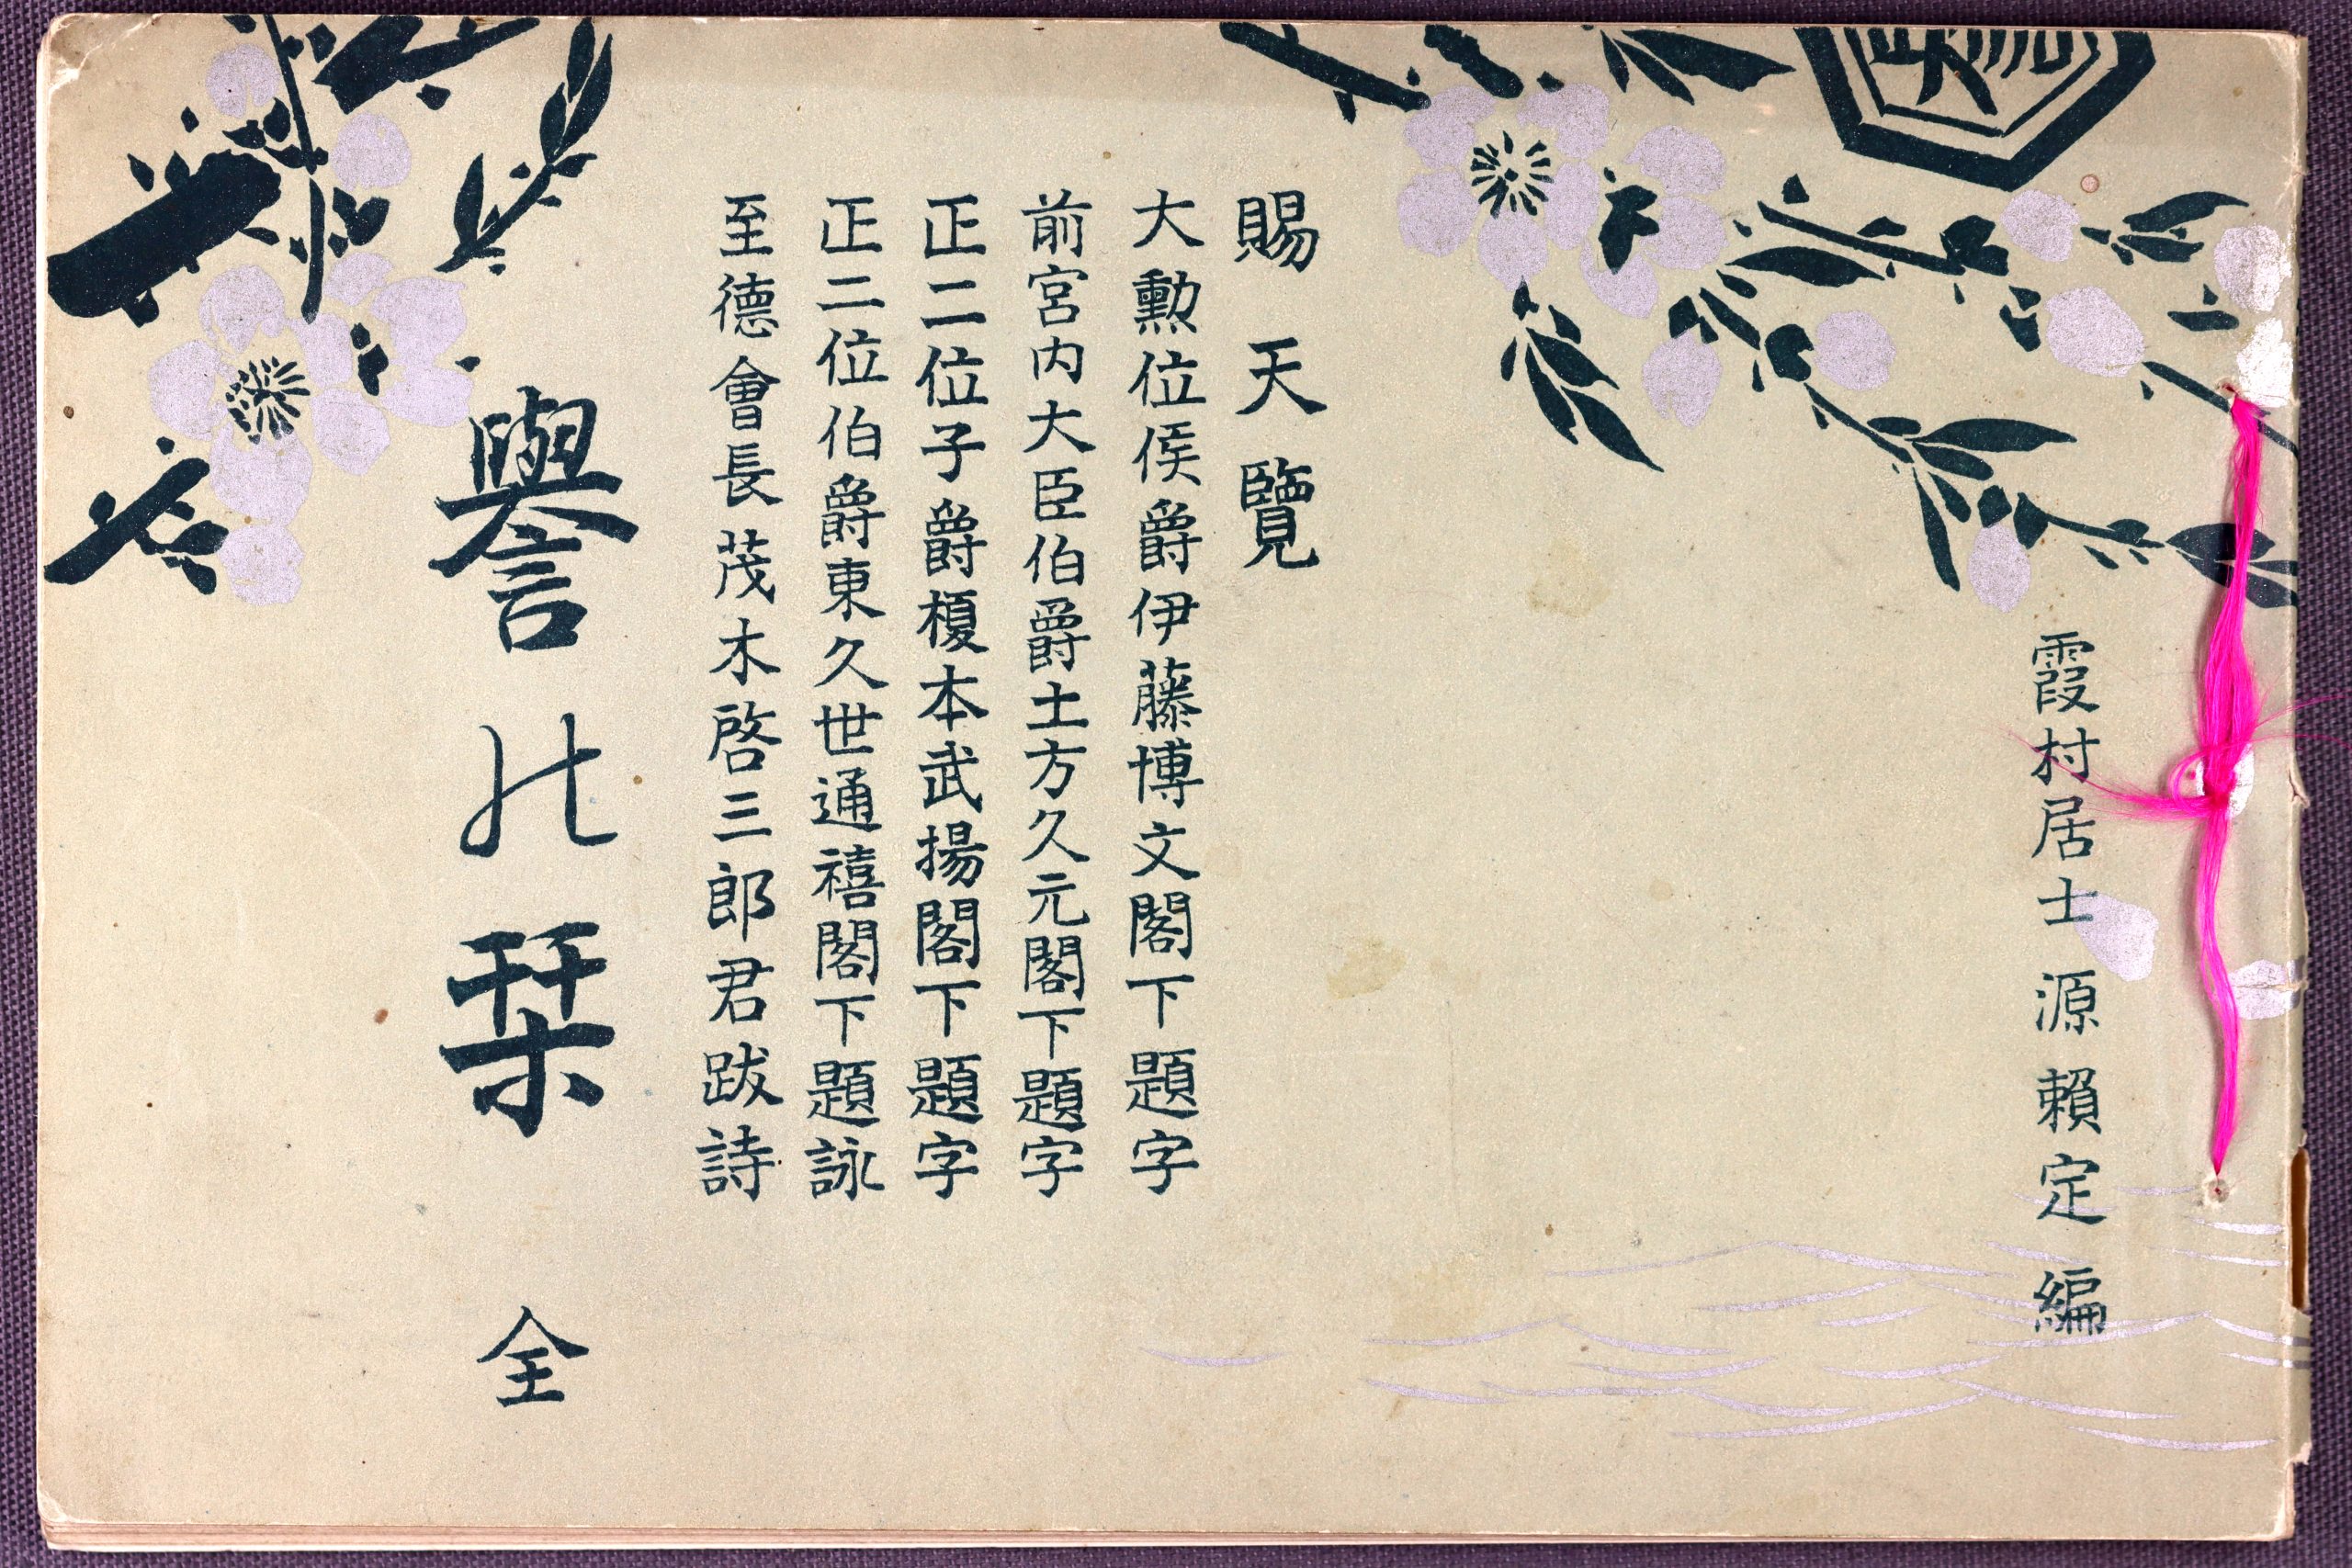 霞村居士 源賴定 編
賜天覽
大勲位侯爵伊藤博文閣下題字
前宮內大臣伯爵土方久元閣下題字
正二位子爵榎本武揚閣下題字
正二位伯爵東久世通禧閣下題詠
至德會長茂木啓三郎君跋詩
譽乃栞 全